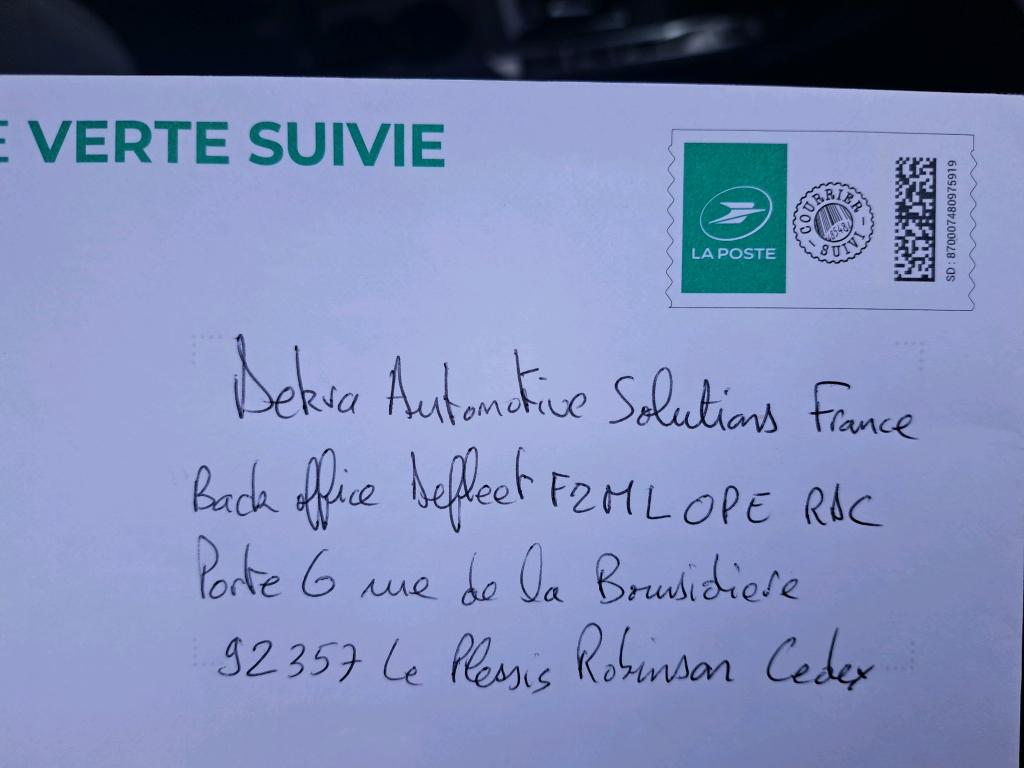 E VERTE SUIVIE
LA POSTE
COURRIER
SUIVI
SD : 87000748097 5919
Dekra Automotive Solutions France
Back office Defleet F2ML OPE RAC
Porte 6 rue de la Boursidiere
92357 Le Plessis Robinson Cedex